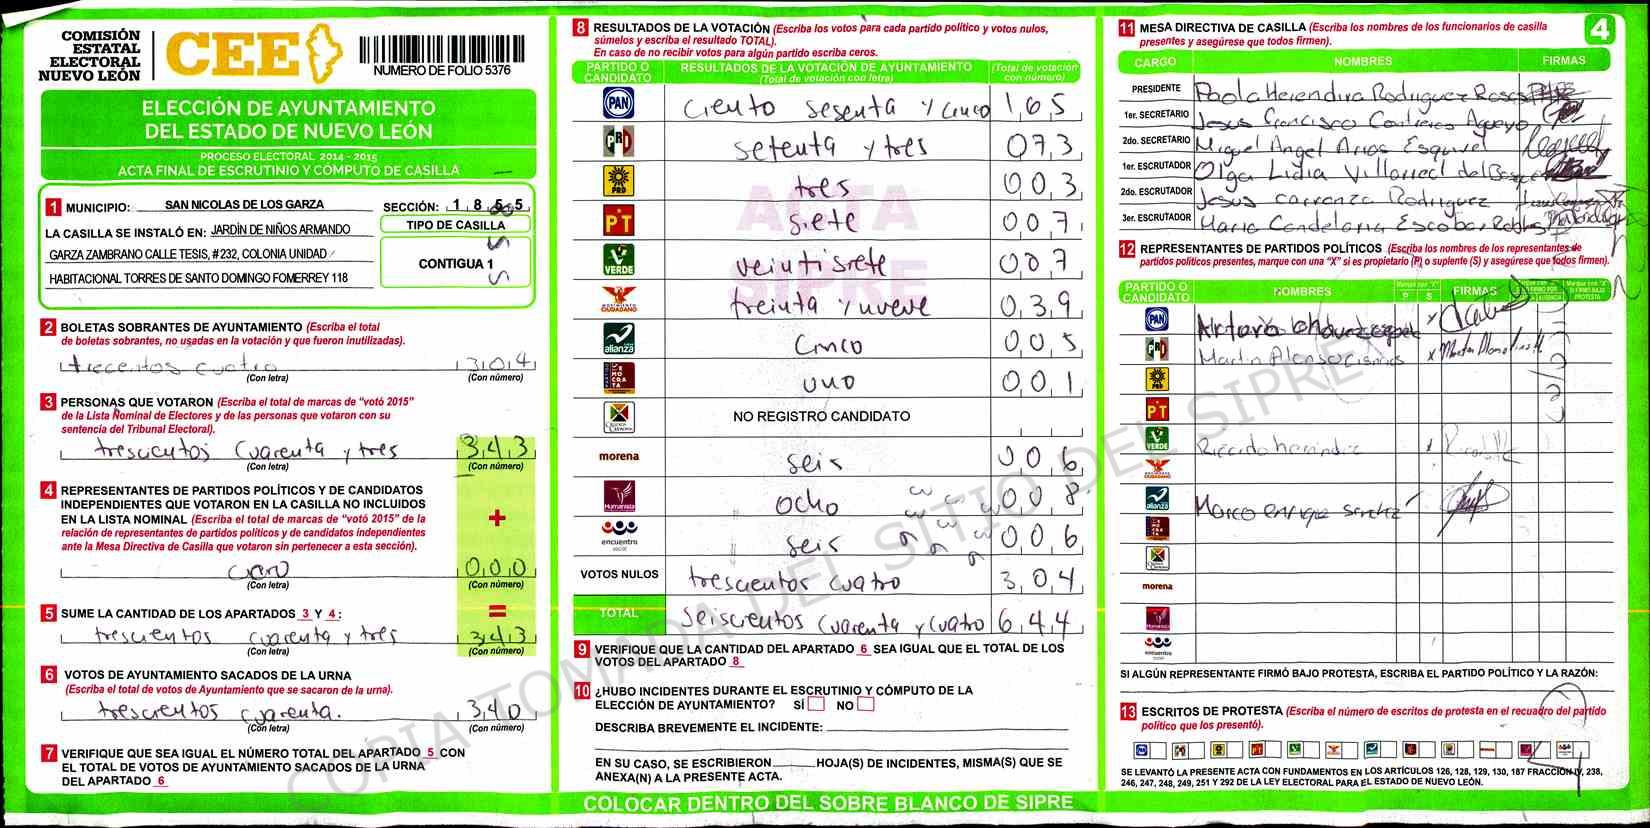 COMISIÓN
ESTATAL
ELECTORAL
NUEVO LEÓN
CEE
NUMERO DE FOLIO 5376
ELECCIÓN DE AYUNTAMIENTO
DEL ESTADO DE NUEVO LEÓN
PROCESO ELECTORAL 2014 - 2015
ACTA FINAL DE ESCRUTINIO Y CÓMPUTO DE CASILLA
1 MUNICIPIO: SAN NICOLAS DE LOS GARZA SECCIÓN: 1 8 5 5
LA CASILLA SE INSTALÓ EN: JARDÍN DE NIÑOS ARMANDO
GARZA ZAMBRANO CALLE TESIS, #232, COLONIA UNIDAD
HABITACIONAL TORRES DE SANTO DOMINGO FOMERREY 118
TIPO DE CASILLA
CONTIGUA 1
2 BOLETAS SOBRANTES DE AYUNTAMIENTO (Escriba el total
de boletas sobrantes, no usadas en la votación y que fueron inutilizadas).
trecentos cuatro 3 0 4
(Con letra) (Con número)
3 PERSONAS QUE VOTARON (Escriba el total de marcas de "votó 2015"
de la Lista Nominal de Electores y de las personas que votaron con su
sentencia del Tribunal Electoral).
trescientos cuarenta y tres 3 4 3
(Con letra) (Con número)
4 REPRESENTANTES DE PARTIDOS POLÍTICOS Y DE CANDIDATOS
INDEPENDIENTES QUE VOTARON EN LA CASILLA NO INCLUIDOS
EN LA LISTA NOMINAL (Escriba el total de marcas de "votó 2015" de la
relación de representantes de partidos políticos y de candidatos independientes
ante la Mesa Directiva de Casilla que votaron sin pertenecer a esta sección).
+
cero 0 0 0
(Con letra) (Con número)
5 SUME LA CANTIDAD DE LOS APARTADOS 3 Y 4: =
trescientos cuarenta y tres 3 4 3
(Con letra) (Con número)
6 VOTOS DE AYUNTAMIENTO SACADOS DE LA URNA
(Escriba el total de votos de Ayuntamiento que se sacaron de la urna).
trescientos cuarenta. 3 4 0
(Con letra) (Con número)
7 VERIFIQUE QUE SEA IGUAL EL NÚMERO TOTAL DEL APARTADO 5 CON
EL TOTAL DE VOTOS DE AYUNTAMIENTO SACADOS DE LA URNA
DEL APARTADO 6
8 RESULTADOS DE LA VOTACIÓN (Escriba los votos para cada partido político y votos nulos,
súmelos y escriba el resultado TOTAL).
En caso de no recibir votos para algún partido escriba ceros.
PARTIDO O CANDIDATO RESULTADOS DE LA VOTACIÓN DE AYUNTAMIENTO (Total de votación con letra) (Total de votación con número)
PAN ciento sesenta y cinco 1 6 5
PRD setenta y tres 0 7 3
PRD tres 0 0 3
PT siete 0 0 7
VERDE veintisiete 0 0 7
MOVIMIENTO CIUDADANO treinta y nueve 0 3 9
alianza cinco 0 0 5
DEMOCRATA uno 0 0 1
NO REGISTRO CANDIDATO
morena seis 0 0 6
Humanista ocho 0 0 8
encuentro social seis 0 0 6
VOTOS NULOS trescientos cuatro 3 0 4
TOTAL seiscientos cuarenta y cuatro 6 4 4
ACTA
SIPRE
9 VERIFIQUE QUE LA CANTIDAD DEL APARTADO 6 SEA IGUAL QUE EL TOTAL DE LOS
VOTOS DEL APARTADO 8
10 ¿HUBO INCIDENTES DURANTE EL ESCRUTINIO Y CÓMPUTO DE LA
ELECCIÓN DE AYUNTAMIENTO? SÍ NO
DESCRIBA BREVEMENTE EL INCIDENTE:
EN SU CASO, SE ESCRIBIERON HOJA(S) DE INCIDENTES, MISMA(S) QUE SE
ANEXA(N) A LA PRESENTE ACTA.
COLOCAR DENTRO DEL SOBRE BLANCO DE SIPRE
COPIA TOMADA DEL SITIO DEL SIPRE
11 MESA DIRECTIVA DE CASILLA (Escriba los nombres de los funcionarios de casilla
presentes y asegúrese que todos firmen).
4
CARGO NOMBRES FIRMAS
PRESIDENTE Paola Herendira Rodriguez Rosas
1er. SECRETARIO Jesus Francisco Contreras Agueyo
2do. SECRETARIO Miguel Angel Arias Esquivel
1er. ESCRUTADOR Olga Lidia Villarreal del Bosque
2do. ESCRUTADOR Jesus carranza Rodriguez
3er. ESCRUTADOR Maria Candelaria Escobar Robles
12 REPRESENTANTES DE PARTIDOS POLÍTICOS (Escriba los nombres de los representantes de
partidos políticos presentes, marque con una "X" si es propietario (P) o suplente (S) y asegúrese que todos firmen).
PARTIDO O CANDIDATO NOMBRES P S FIRMAS
PAN Arturo Chavez x
PRD Martin Alonso x
PRD
PT
VERDE Ricardo hernandez x
alianza Marco enrique Sanchez
morena
Humanista
encuentro social
SI ALGÚN REPRESENTANTE FIRMÓ BAJO PROTESTA, ESCRIBA EL PARTIDO POLÍTICO Y LA RAZÓN:
13 ESCRITOS DE PROTESTA (Escriba el número de escritos de protesta en el recuadro del partido
político que los presentó).
SE LEVANTÓ LA PRESENTE ACTA CON FUNDAMENTOS EN LOS ARTÍCULOS 126, 128, 129, 130, 187 FRACCIÓN IV, 238,
246, 247, 248, 249, 251 Y 292 DE LA LEY ELECTORAL PARA EL ESTADO DE NUEVO LEÓN.